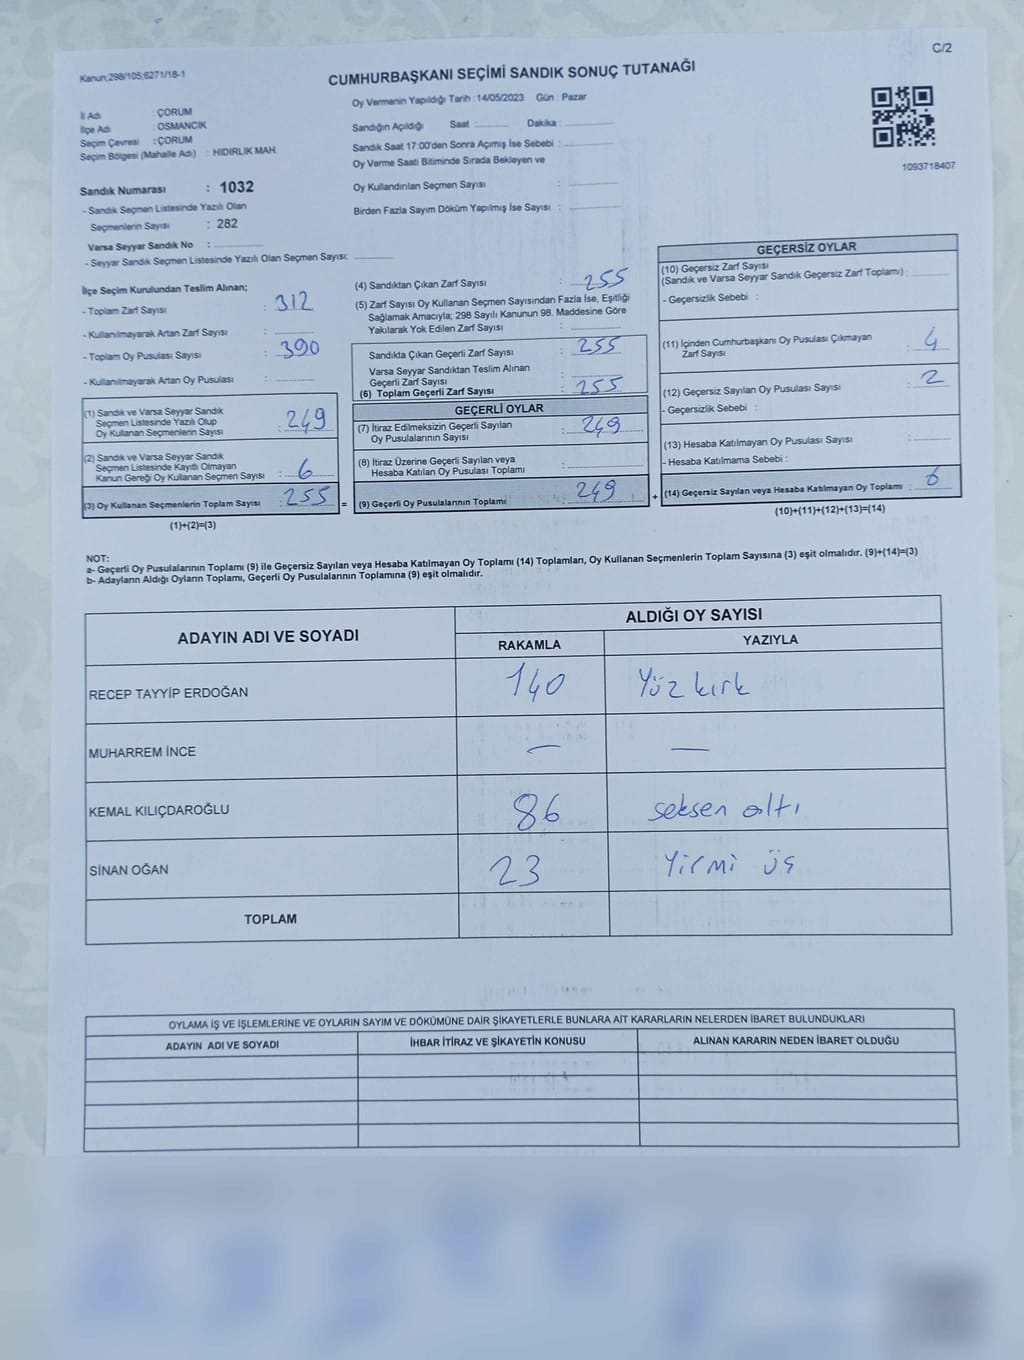 C/2
Kanun;298/105;6271/18-1
CUMHURBAŞKANI SEÇİMİ SANDIK SONUÇ TUTANAĞI
İl Adı : ÇORUM
İlçe Adı : OSMANCIK
Seçim Çevresi : ÇORUM
Seçim Bölgesi (Mahalle Adı) : HIDIRLIK MAH.
Sandık Numarası : 1032
- Sandık Seçmen Listesinde Yazılı Olan
Seçmenlerin Sayısı : 282
Varsa Seyyar Sandık No :
- Seyyar Sandık Seçmen Listesinde Yazılı Olan Seçmen Sayısı:
Oy Vermenin Yapıldığı Tarih :14/05/2023 Gün : Pazar
Sandığın Açıldığı Saat : Dakika :
Sandık Saat 17:00'den Sonra Açımış İse Sebebi :
Oy Verme Saati Bitiminde Sırada Bekleyen ve
Oy Kullandırılan Seçmen Sayısı :
Birden Fazla Sayım Döküm Yapılmış İse Sayısı :
1093718407
İlçe Seçim Kurulundan Teslim Alınan;
- Toplam Zarf Sayısı : 312
- Kullanılmayarak Artan Zarf Sayısı :
- Toplam Oy Pusulası Sayısı : 390
- Kullanılmayarak Artan Oy Pusulası :
(1) Sandık ve Varsa Seyyar Sandık
Seçmen Listesinde Yazılı Olup
Oy Kullanan Seçmenlerin Sayısı : 249
(2) Sandık ve Varsa Seyyar Sandık
Seçmen Listesinde Kayıtlı Olmayan
Kanun Gereği Oy Kullanan Seçmen Sayısı : 6
(3) Oy Kullanan Seçmenlerin Toplam Sayısı : 255 =
(1)+(2)=(3)
(4) Sandıktan Çıkan Zarf Sayısı : 255
(5) Zarf Sayısı Oy Kullanan Seçmen Sayısından Fazla İse, Eşitliği
Sağlamak Amacıyla; 298 Sayılı Kanunun 98. Maddesine Göre
Yakılarak Yok Edilen Zarf Sayısı :
Sandıkta Çıkan Geçerli Zarf Sayısı : 255
Varsa Seyyar Sandıktan Teslim Alınan
Geçerli Zarf Sayısı :
(6) Toplam Geçerli Zarf Sayısı : 255
GEÇERLİ OYLAR
(7) İtiraz Edilmeksizin Geçerli Sayılan
Oy Pusulalarının Sayısı : 249
(8) İtiraz Üzerine Geçerli Sayılan veya
Hesaba Katılan Oy Pusulası Toplamı :
(9) Geçerli Oy Pusulalarının Toplamı : 249 +
GEÇERSİZ OYLAR
(10) Geçersiz Zarf Sayısı
(Sandık ve Varsa Seyyar Sandık Geçersiz Zarf Toplamı) :
- Geçersizlik Sebebi :
(11) İçinden Cumhurbaşkanı Oy Pusulası Çıkmayan
Zarf Sayısı : 4
(12) Geçersiz Sayılan Oy Pusulası Sayısı : 2
- Geçersizlik Sebebi :
(13) Hesaba Katılmayan Oy Pusulası Sayısı :
- Hesaba Katılmama Sebebi :
(14) Geçersiz Sayılan veya Hesaba Katılmayan Oy Toplamı : 6
(10)+(11)+(12)+(13)=(14)
NOT:
a- Geçerli Oy Pusulalarının Toplamı (9) ile Geçersiz Sayılan veya Hesaba Katılmayan Oy Toplamı (14) Toplamları, Oy Kullanan Seçmenlerin Toplam Sayısına (3) eşit olmalıdır. (9)+(14)=(3)
b- Adayların Aldığı Oyların Toplamı, Geçerli Oy Pusulalarının Toplamına (9) eşit olmalıdır.
ADAYIN ADI VE SOYADI
ALDIĞI OY SAYISI
RAKAMLA YAZIYLA
RECEP TAYYİP ERDOĞAN 140 Yüz kırk
MUHARREM İNCE — —
KEMAL KILIÇDAROĞLU 86 seksen altı
SİNAN OĞAN 23 Yirmi üç
TOPLAM
OYLAMA İŞ VE İŞLEMLERİNE VE OYLARIN SAYIM VE DÖKÜMÜNE DAİR ŞİKAYETLERLE BUNLARA AİT KARARLARIN NELERDEN İBARET BULUNDUKLARI
ADAYIN ADI VE SOYADI İHBAR İTİRAZ VE ŞİKAYETİN KONUSU ALINAN KARARIN NEDEN İBARET OLDUĞU